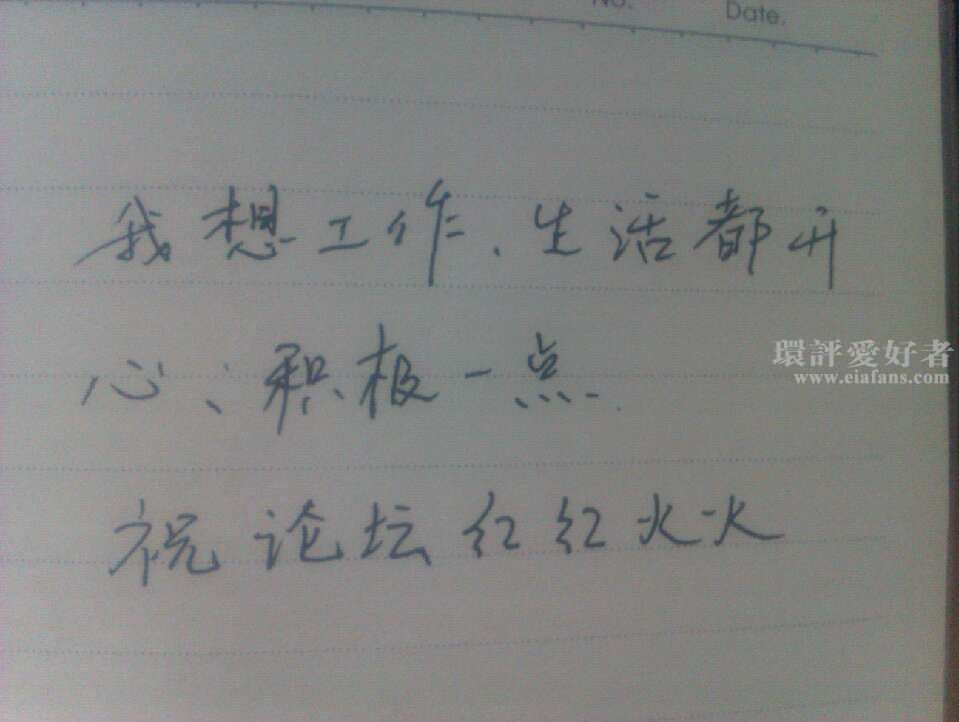 No.
Date.
我想工作、生活都开
心、积极一点.
祝论坛红红火火
環評愛好者
www.eiafans.com